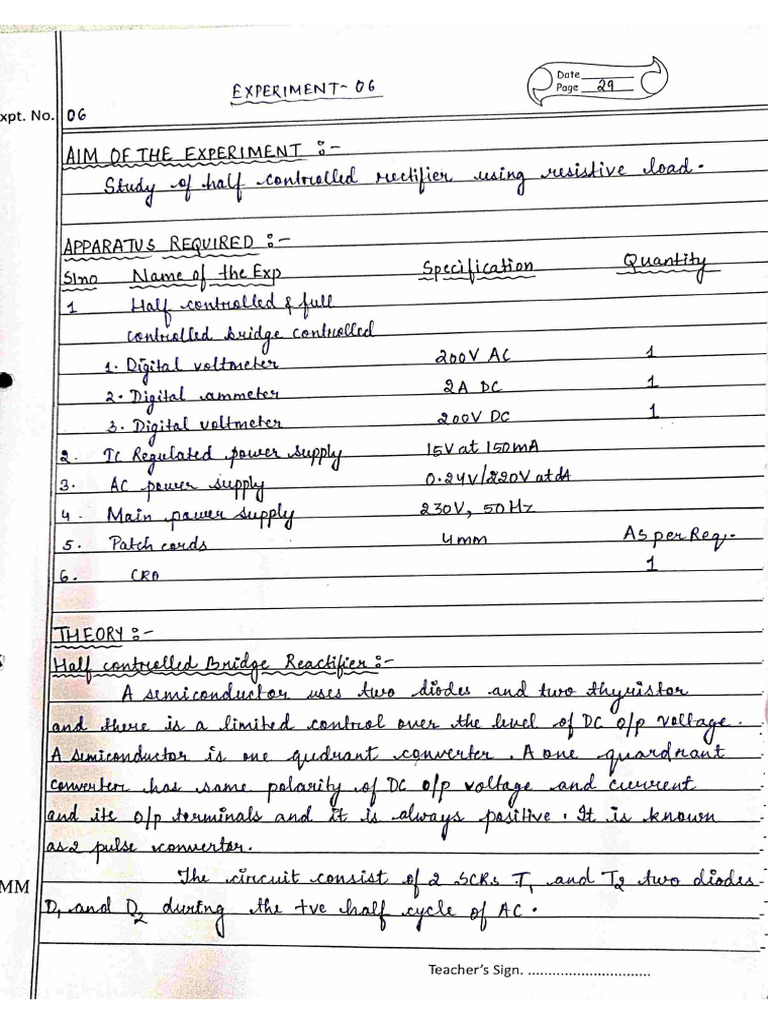 EXPERIMENT-06
Date
Page 29
xpt. No. 06
AIM OF THE EXPERIMENT :-
Study of half controlled rectifier using resistive load.
APPARATUS REQUIRED :-
Slno Name of the Exp Specification Quantity
1 Half controlled & full
controlled bridge controlled
1. Digital voltmeter 200V AC 1
2. Digital ammeter 2A DC 1
3. Digital voltmeter 200V DC 1
2. Ic Regulated power supply 15V at 150mA
3. AC power supply 0.24V/220V at
4. Main power supply 230V, 50Hz
5. Patch cords 4mm As per Req.
6. CRO 1
THEORY :-
Half controlled Bridge Reactifier :-
A semiconductor uses two diodes and two thyristor
and there is a limited control over the level of DC o/p voltage.
A semiconductor is one qudrant converter. A one quardrant
converter has same polarity of DC o/p voltage and current
and its o/p terminals and it is always positive. It is known
as 2 pulse convertor.
The circuit consist of 2 SCRs T1 and T2 two diodes
D1 and D2 during the +ve half cycle of AC.
MM
Teacher's Sign. ..............................